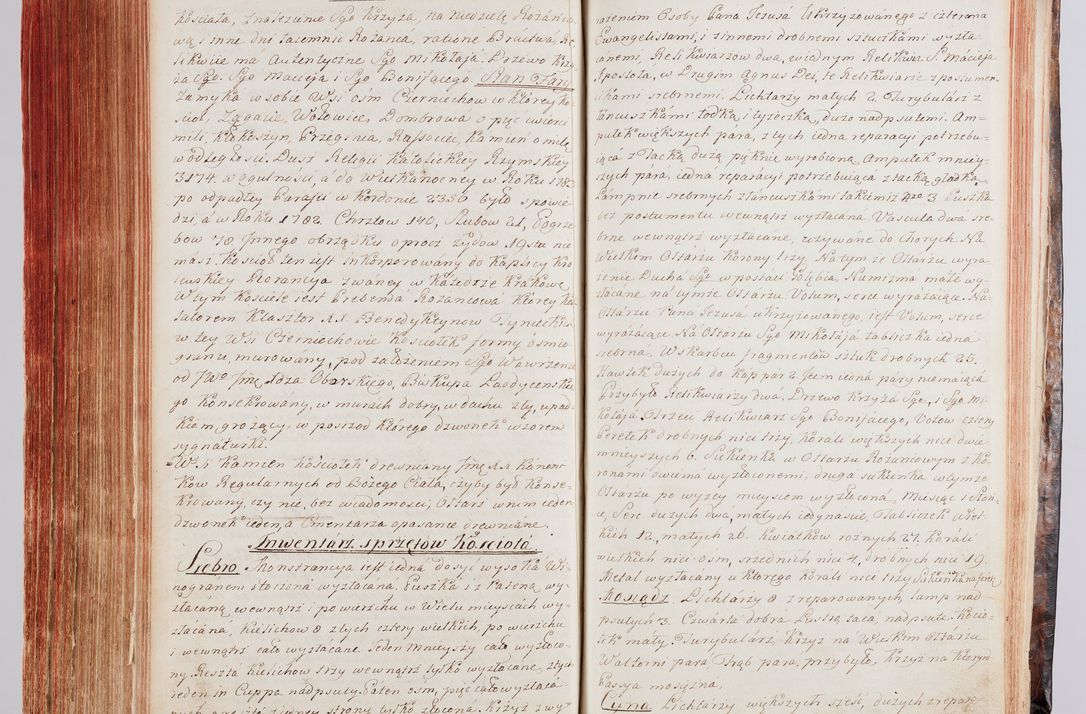 Kościoła, Znalezienie Sgo Krzyża, na Niedzielę Różańco-
wą i inne dni tajemnic Różańca, ratione Bractwa, Re-
likwie ma Autentyczne Sgo Mikołaja. Drzewo Krzy-
ża Sgo. Sgo Macieja i Sgo Bonifacego. Stan
Zamyka w sobie Wsi ośm Czerniechow w którey ko-
scioł, Zagacie, Wołowice, Dombrowa o pęć cwierci
mili, Kłokoszyn, Przeginia, Rąssocice, Kamień o milę
w odległości. Dusz Religii Katolickiey Rzymskiey
3174. w ogulności, a do Wielkanocney w Roku 178
po odpadłey Parafii w Kordonie 2350 było spowie-
dzi, a w Roku 1782. Chrztow 140, Slubow 21, Pogrze
bow 78. Innego obrządku oprocz żydow 19sta nie
masz, kościoł ten jest inkorporowany do Kaplicy Kro
lewskiey Rorancya zwaney w Katedrze Krakow.
W tym Kościele jest Prebenda Rożańcowa którey kol-
latorem Klasztor XX Benedyktynow Tynieckich
w tey Wsi Czerniechowie Kościołek formy ośmio
granu, murowany, pod założeniem Sgo Wawrzeńca
od JWo Jmę Xdza Oborskiego, Biskupa Laodycenskie
go konsekrowany, w murach dobry, w dachu zły, upad-
kiem grożący, w posrzod którego dzwonek wzorem
sygnaturki.
Wsi Kamień kościołek drewniany Jmę XX Kanoni
ków Regularnych od Bożego Ciała, czyby był konse-
krowany, czy nie, bez wiadomości, Ołtarz w nim ieden
dzwonek ieden, a Cmentarza opasanie drewniane.
Inwentarz sprzętow kościoła
Srebro. Monstrancya jest iedna dosyć wysoka Wi-
nogronem otoczona wyzłacana, Puszka i z Pateną wy-
złacaną wewnątrz i po wierzchu w wielu mieyscach wy-
złacana, Kielichow 8 z tych cztery wielkich, po wierzchu
i wewnątrz cało wyzłacane Jeden mnieyszy cało wyzłoco-
ny, Reszta Kielichow trzy wewnątrz tylko wyzłacane, z tych
ieden in Cuppa nadpsuty Paten ośm, pięć cało wyzłaca
z iedney strony tylko złocone Krzyż z wy-
rażeniem Osoby Pana Jezusa Ukrzyżowanego z czterma
Ewangelistami, i z innemi drobnemi sztuczkami wyzła-
canemi, Relikwiarzow dwa, w iednym Relikwia S. Macieja
Apostoła, w Drugim Agnus Dei, te Relikwiarze z postumen-
tikami srebrnemi. Lichtarzy małych 2. Turybularz z
łancuszkami łodka, i łyżeczka, dużo nadpsutemi. Am-
pułek większych para, z tych iedna reparacyi potrzebu-
iąca z Tacką dużą pięknie wyrobioną Ampułek mniey-
szych para, iedna reparacyi potrzebuiąca z tacką gładką
Lampnie srebrnych z łancuszkami takiemiż Nro 3 Puszka
bez postumentu wewnątrz wyzłacana. Vascula dwa sre-
brne wewnątrz wyzłacane, używane do chorych. Na
Wielkim Ołtarzu korony trzy. Na tymże Ołtarzu wyra-
żenie Ducha Sgo w postaci Gołębia. Numizma małe wy-
złacane na tymże Ołtarzu Votum, serce wyrażaiące. Na
Ołtarzu Pana Jezusa ukrzyżowanego, jest Votum, serce
wyrażaiące. Na Ołtarzu Sgo Mikołaja tabliczka iedna
srebrna. W skarbcu fragmentów sztuk drobnych 25.
Hawtek dużych do kap par 2. Item iedna pary niemaiąca
Przybyło Relikwiarzy dwa, Drzewo Krzyża Sgo, i Sgo Mi-
kołaja. Trzeci Relikwiarz Sgo Bonifacego, Votow cztery
Perełek drobnych nici trzy, korali większych nici dwie
mnieyszych 6. Sukienka w Ołtarzu Rożańcowym z ko-
ronami dwoma wyzłoconemi, druga sukienka w tymże
Ołtarzu po wyżey mieyscem wyzłocona, Miesiąc i Słoń-
ce, Serc dużych dwa, małych iedynaście, Tabliczek wiel-
kich 12, małych 26. kwiatkow rożnych 27. Korali
wielkich nici ośm, srzednich nici 4, drobnych nici 19.
Metal wyzłacany u którego korali nici trzy Sukienka na
Mosiądz. Lichtarzy 8 z reparowanych, Lamp nad-
psutych 3. Czwarta dobra taca nadpsuta Kocio-
łek mały, Turybularz, Krzyż na Wielkim Ołtarzu
Waltorni para Trąb para, przybyło, Krzyż na którym
Passya mosiężna,
Cyna Lichtarzy większych sześć, dużych z repar-